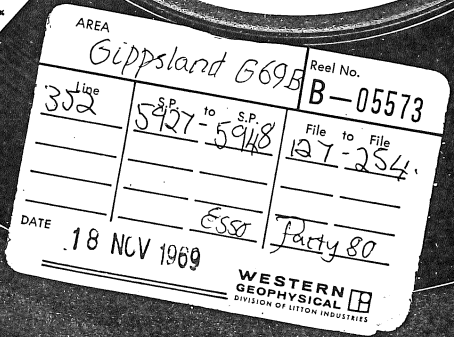 AREA
Gippsland G69B
Reel No.
B-05573
Line S.P. to S.P. File to File
352 5927 - 5948 127 - 254.
Esso Party 80
DATE
18 NOV 1969
WESTERN
GEOPHYSICAL
DIVISION OF LITTON INDUSTRIES